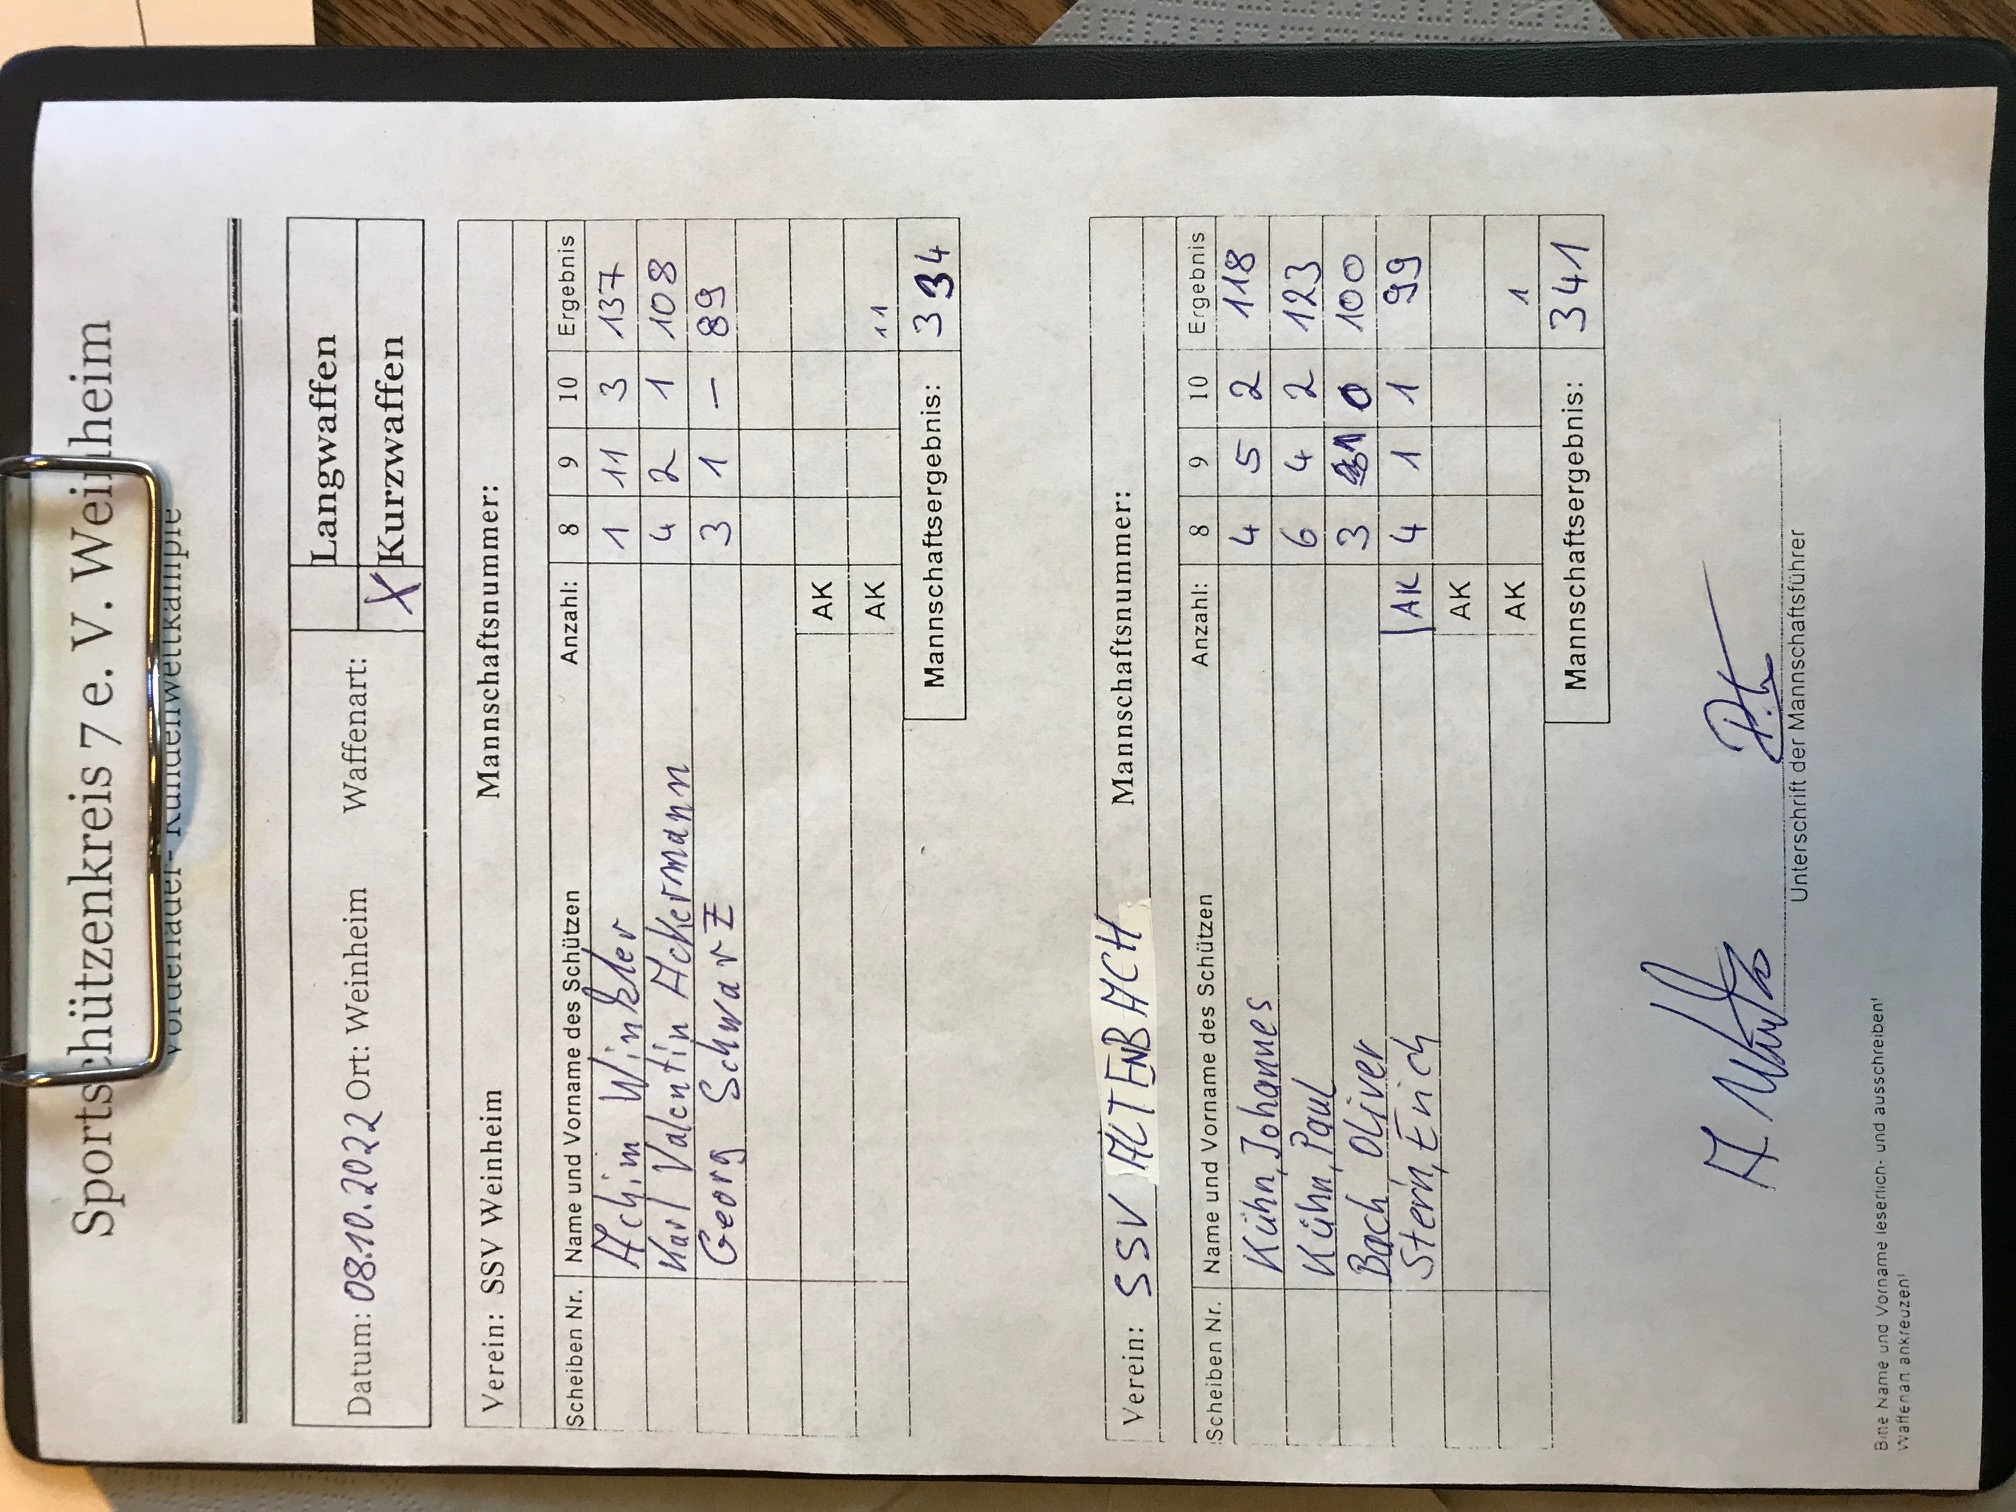 Sportschützenkreis 7 e. V. Weinheim
Vorderlader- Rundenwettkämpfe
Datum: 08.10.2022 Ort: Weinheim Waffenart: Langwaffen
X Kurzwaffen
Verein: SSV Weinheim Mannschaftsnummer:
Scheiben Nr. Name und Vorname des Schützen Anzahl: 8 9 10 Ergebnis
Achim Winkler 1 11 3 137
Karl Valentin Ackermann 4 2 1 108
Georg Schwarz 3 1 – 89
AK
AK 11
Mannschaftsergebnis: 334
Verein: SSV ALTENBACH Mannschaftsnummer:
Scheiben Nr. Name und Vorname des Schützen Anzahl: 8 9 10 Ergebnis
Kühn, Johannes 4 5 2 118
Kühn, Paul 6 4 2 123
Bach, Oliver 3 0 100
Stern, Erich AK 4 1 1 99
AK
AK 1
Mannschaftsergebnis: 341
Unterschrift der Mannschaftsführer
Bitte Name und Vorname leserlich- und ausschreiben!
Waffenart ankreuzen!